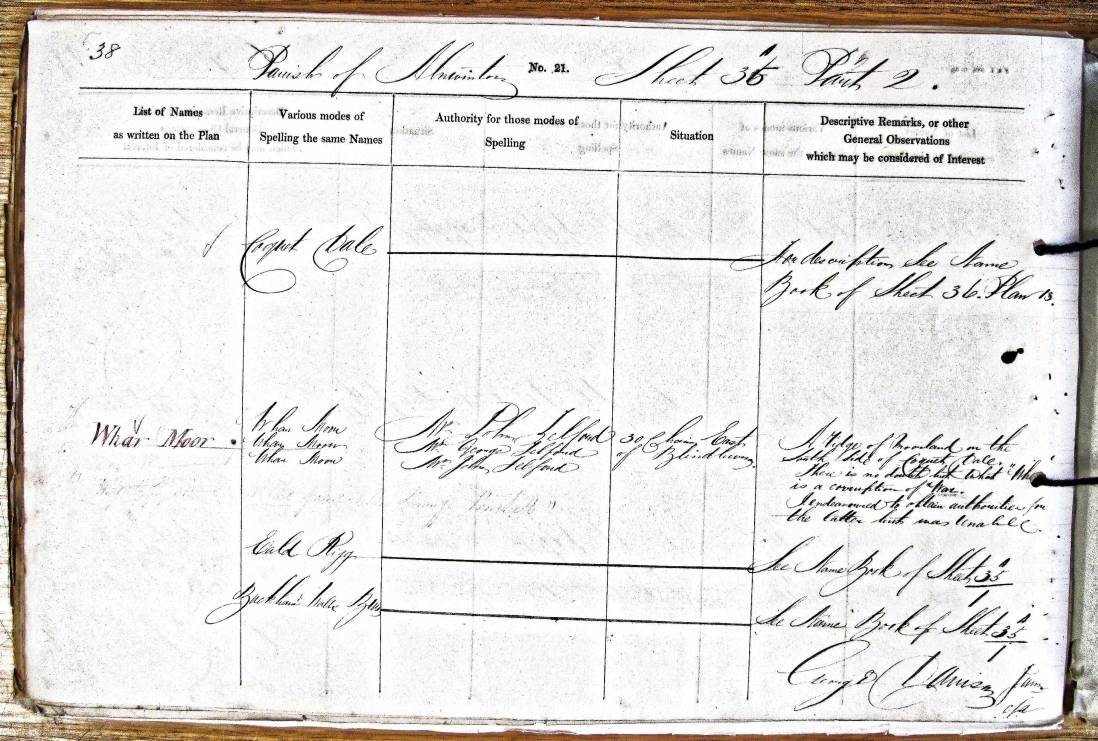 38
Parish of Alwinton No. 21. Sheet 35 Part 2.
List of Names
as written on the Plan
Various modes of
Spelling the same Names
Authority for those modes of
Spelling
Situation
Descriptive Remarks, or other
General Observations
which may be considered of Interest
Coquet Dale
For description See Name
Book of Sheet 36. Plan 13.
Whar Moor
Whar Moor
Whar Moor
Whar Moor
Mr. John Telford
Mr. George Telford
Mr. John Telford
30 Chains East
of Blindburn
A Ridge of Moorland on the
South Side of Coquet Dale.
There is no doubt but what "Whar"
is a corruption of "War".
I endeavoured to obtain authorities for
the latter but was Unable
Eald Rigg
See Name Book of Sheet 35
1
Buckham's Walls
See Name Book of Sheet 35
1
George